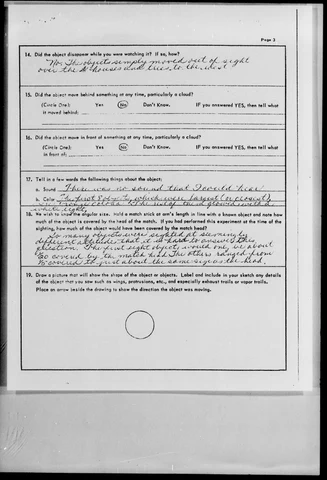 Page 3
14. Did the object disappear while you were watching it? If so, how?
No. The objects simply moved out of sight
over the houses and trees to the west
15. Did the object move behind something at any time, particularly a cloud?
(Circle One): Yes No Don't Know. IF you answered YES, then tell what
it moved behind:
16. Did the object move in front of something at any time, particularly a cloud?
(Circle One): Yes No Don't Know. IF you answered YES, then tell what
in front of:
17. Tell in a few words the following things about the object:
a. Sound There was no sound that I could hear
b. Color The first which were largest (or closest)
white light
18. We wish to know the angular size. Hold a match stick at arm's length in line with a known object and note how
much of the object is covered by the head of the match. If you had performed this experiment at the time of the
sighting, how much of the object would have been covered by the match head?
So many objects were sighted at seemingly
different altitudes that it is hard to answer this
question. The first eight objects would only be about
covered by the match head. The others ranged from
covered to just about the same size as the head.
19. Draw a picture that will show the shape of the object or objects. Label and include in your sketch any details
of the object that you saw such as wings, protrusions, etc., and especially exhaust trails or vapor trails.
Place an arrow beside the drawing to show the direction the object was moving.